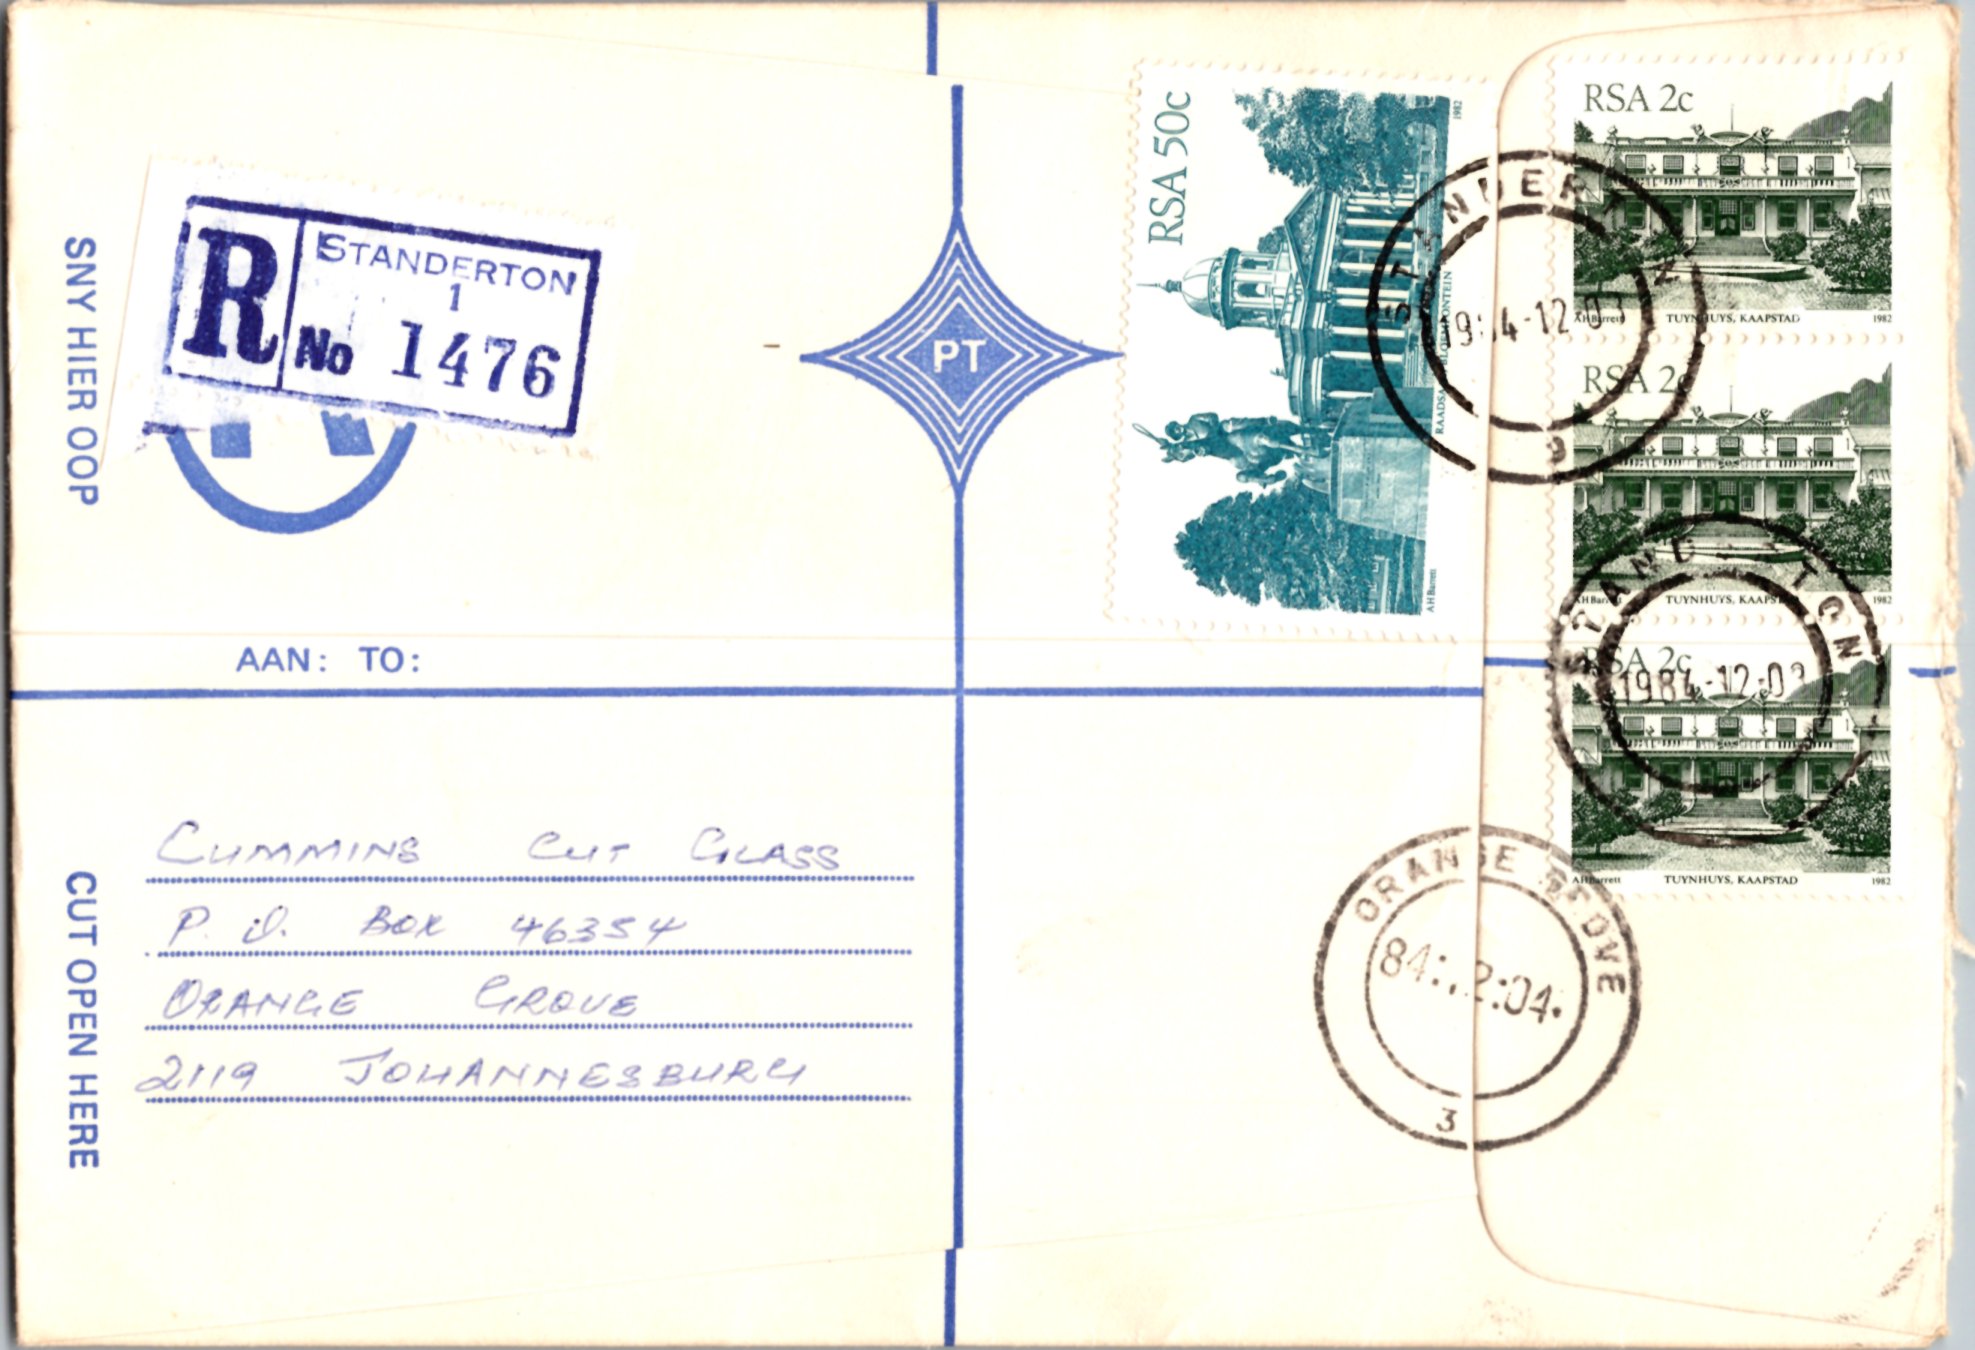 SNY HIER OOP
R
STANDERTON
1
No 1476
PT
RSA 50c
1982
BLOEMFONTEIN
AH Barrett
RSA 2c
AH Barrett TUYNHUYS, KAAPSTAD 1982
RSA 2c
AH Barrett TUYNHUYS, KAAPSTAD 1982
RSA 2c
AH Barrett TUYNHUYS, KAAPSTAD 1982
STANDERTON
9
STANDERTON
1984-12-03
AAN: TO:
CUT OPEN HERE
CUMMINS CUT GLASS
P. O. BOX 46354
ORANGE GROVE
2119 JOHANNESBURG
ORANGE GROVE
84:12:04.
3